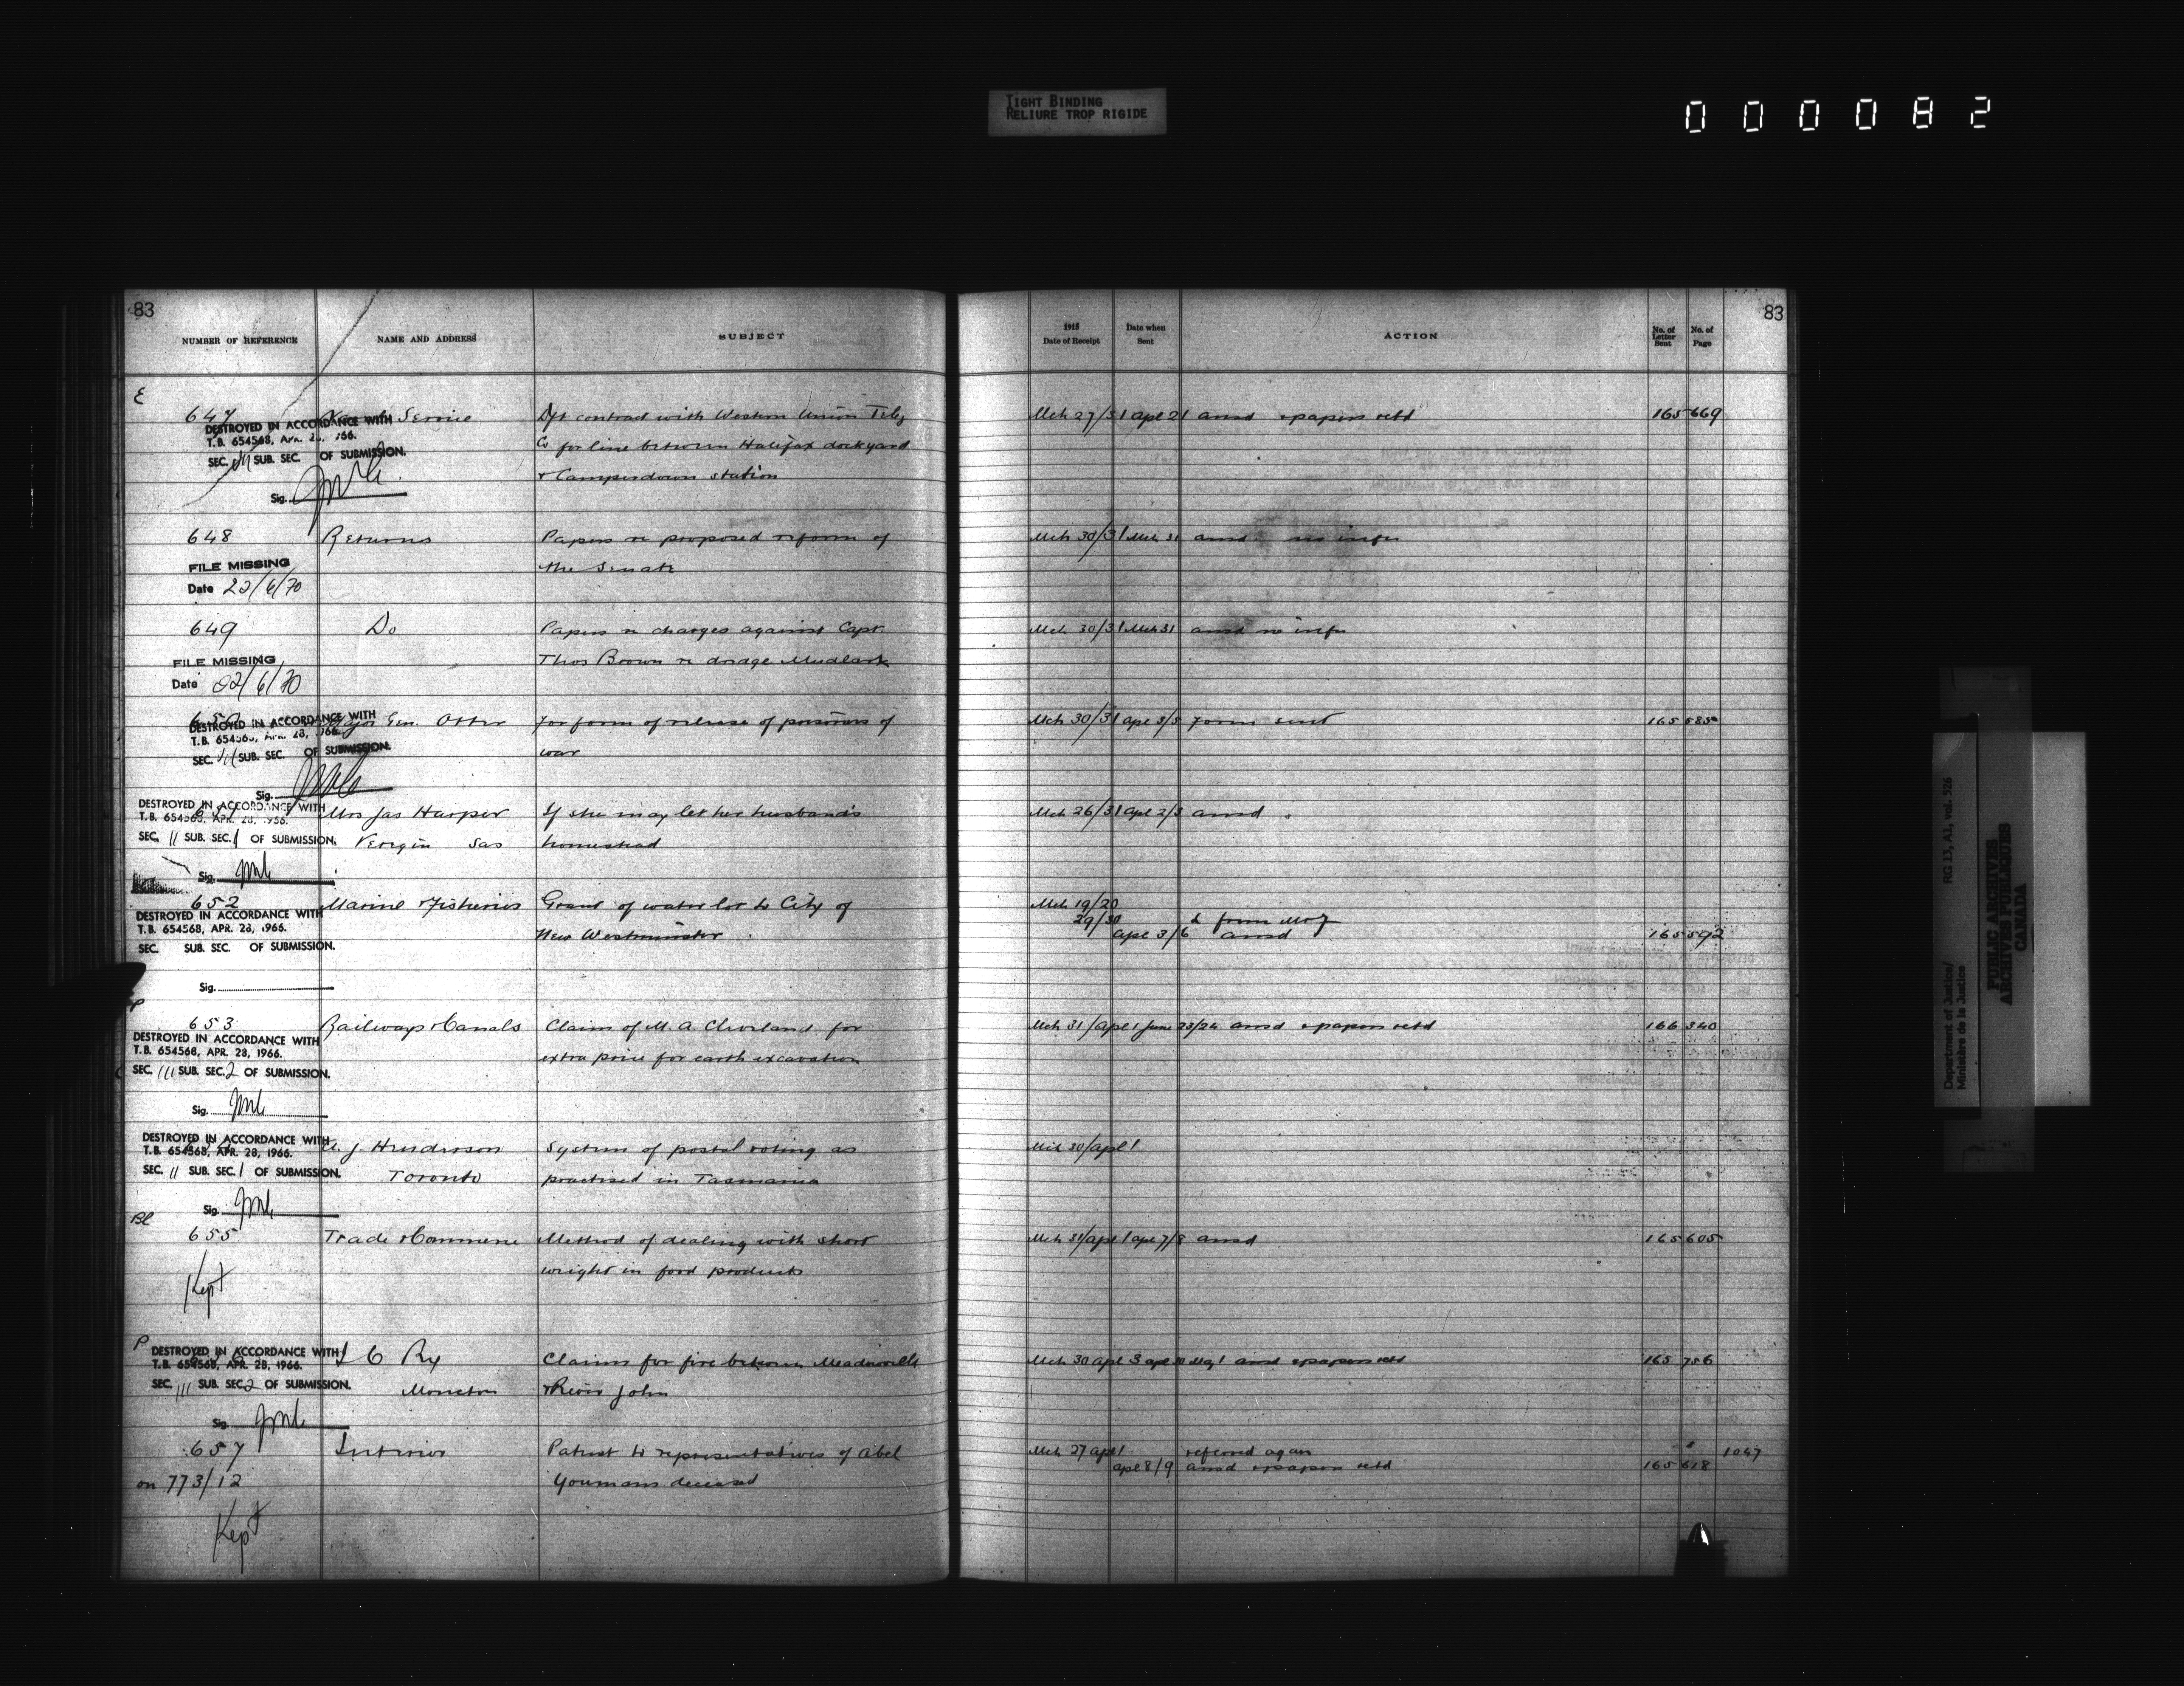 TIGHT BINDING
RELIURE TROP RIGIDE
000082
83
NUMBER OF REFERENCE NAME AND ADDRESS SUBJECT
E
647 Naval Service Dft contract with Western Union Teleg
DESTROYED IN ACCORDANCE WITH
T.B. 654568, APR. 28, 1966.
Co for line between Halifax dockyard
SEC. SUB. SEC. OF SUBMISSION.
& Camperdown station
Sig.
648 Returns Papers re proposed reform of
FILE MISSING
the Senate
Date 22/6/70
649 Do Papers re charges against Capt.
FILE MISSING
Thos Brown re dredge Mudlark
Date 22/6/70
650 Major Gen. Otter For form of release of prisoners of
DESTROYED IN ACCORDANCE WITH
T.B. 654568, APR. 28, 1966.
war
SEC. 11 SUB. SEC. OF SUBMISSION.
Sig.
DESTROYED IN ACCORDANCE WITH
T.B. 654568, APR. 28, 1966.
Mrs Jas Harper If she may let her husband's
SEC. 11 SUB. SEC. 1 OF SUBMISSION.
Veregin Sas homestead
Sig.
652 Marine & Fisheries Grant of water lot to City of
DESTROYED IN ACCORDANCE WITH
T.B. 654568, APR. 28, 1966.
New Westminster
SEC. SUB. SEC. OF SUBMISSION.
Sig.
P
653 Railways & Canals Claim of M. A. Cleveland for
DESTROYED IN ACCORDANCE WITH
T.B. 654568, APR. 28, 1966.
extra price for earth excavation
SEC. 111 SUB. SEC. 2 OF SUBMISSION.
Sig.
DESTROYED IN ACCORDANCE WITH
T.B. 654568, APR. 28, 1966.
A. J. Henderson System of postal voting as
SEC. 11 SUB. SEC. 1 OF SUBMISSION.
Toronto practised in Tasmania
Sig.
Bl
655 Trade & Commerce Method of dealing with short
weight in food products
Kept
P
DESTROYED IN ACCORDANCE WITH
T.B. 654568, APR. 28, 1966.
I C Ry Claims for fire between Meadowville
SEC. 111 SUB. SEC. 2 OF SUBMISSION.
Moncton & River John
Sig.
657 Interior Patent to representatives of Abel
on 773/12 Youmans deceased
Kept
83
1915
Date of Receipt
Date when
Sent
ACTION
No. of
Letter
Sent
No. of
Page
Mch 27/31 Apl 21 ansd & papers retd 165 669
Mch 30/31 Mch 31 ansd no infn
Mch 30/31 Mch 31 ansd no infn
Mch 30/31 Apl 3/5 Form sent 165 585
Mch 26/31 Apl 2/3 ansd
Mch 19/20
29/30 from M & F
Apl 3/6 ansd 165 592
Mch 31/Apl 1 June 23/24 ansd & papers retd 166 340
Mch 30/Apl 1
Mch 31/Apl 1 Apl 7/8 ansd 165 605
Mch 30 Apl 3 Apl 30 May 1 ansd & papers retd 165 756
Mch 27 Apl 1 referred again 1047
Apl 8/9 ansd & papers retd 165 618
Department of Justice/
Ministère de la Justice
RG 13, A1, vol. 526
PUBLIC ARCHIVES
ARCHIVES PUBLIQUES
CANADA